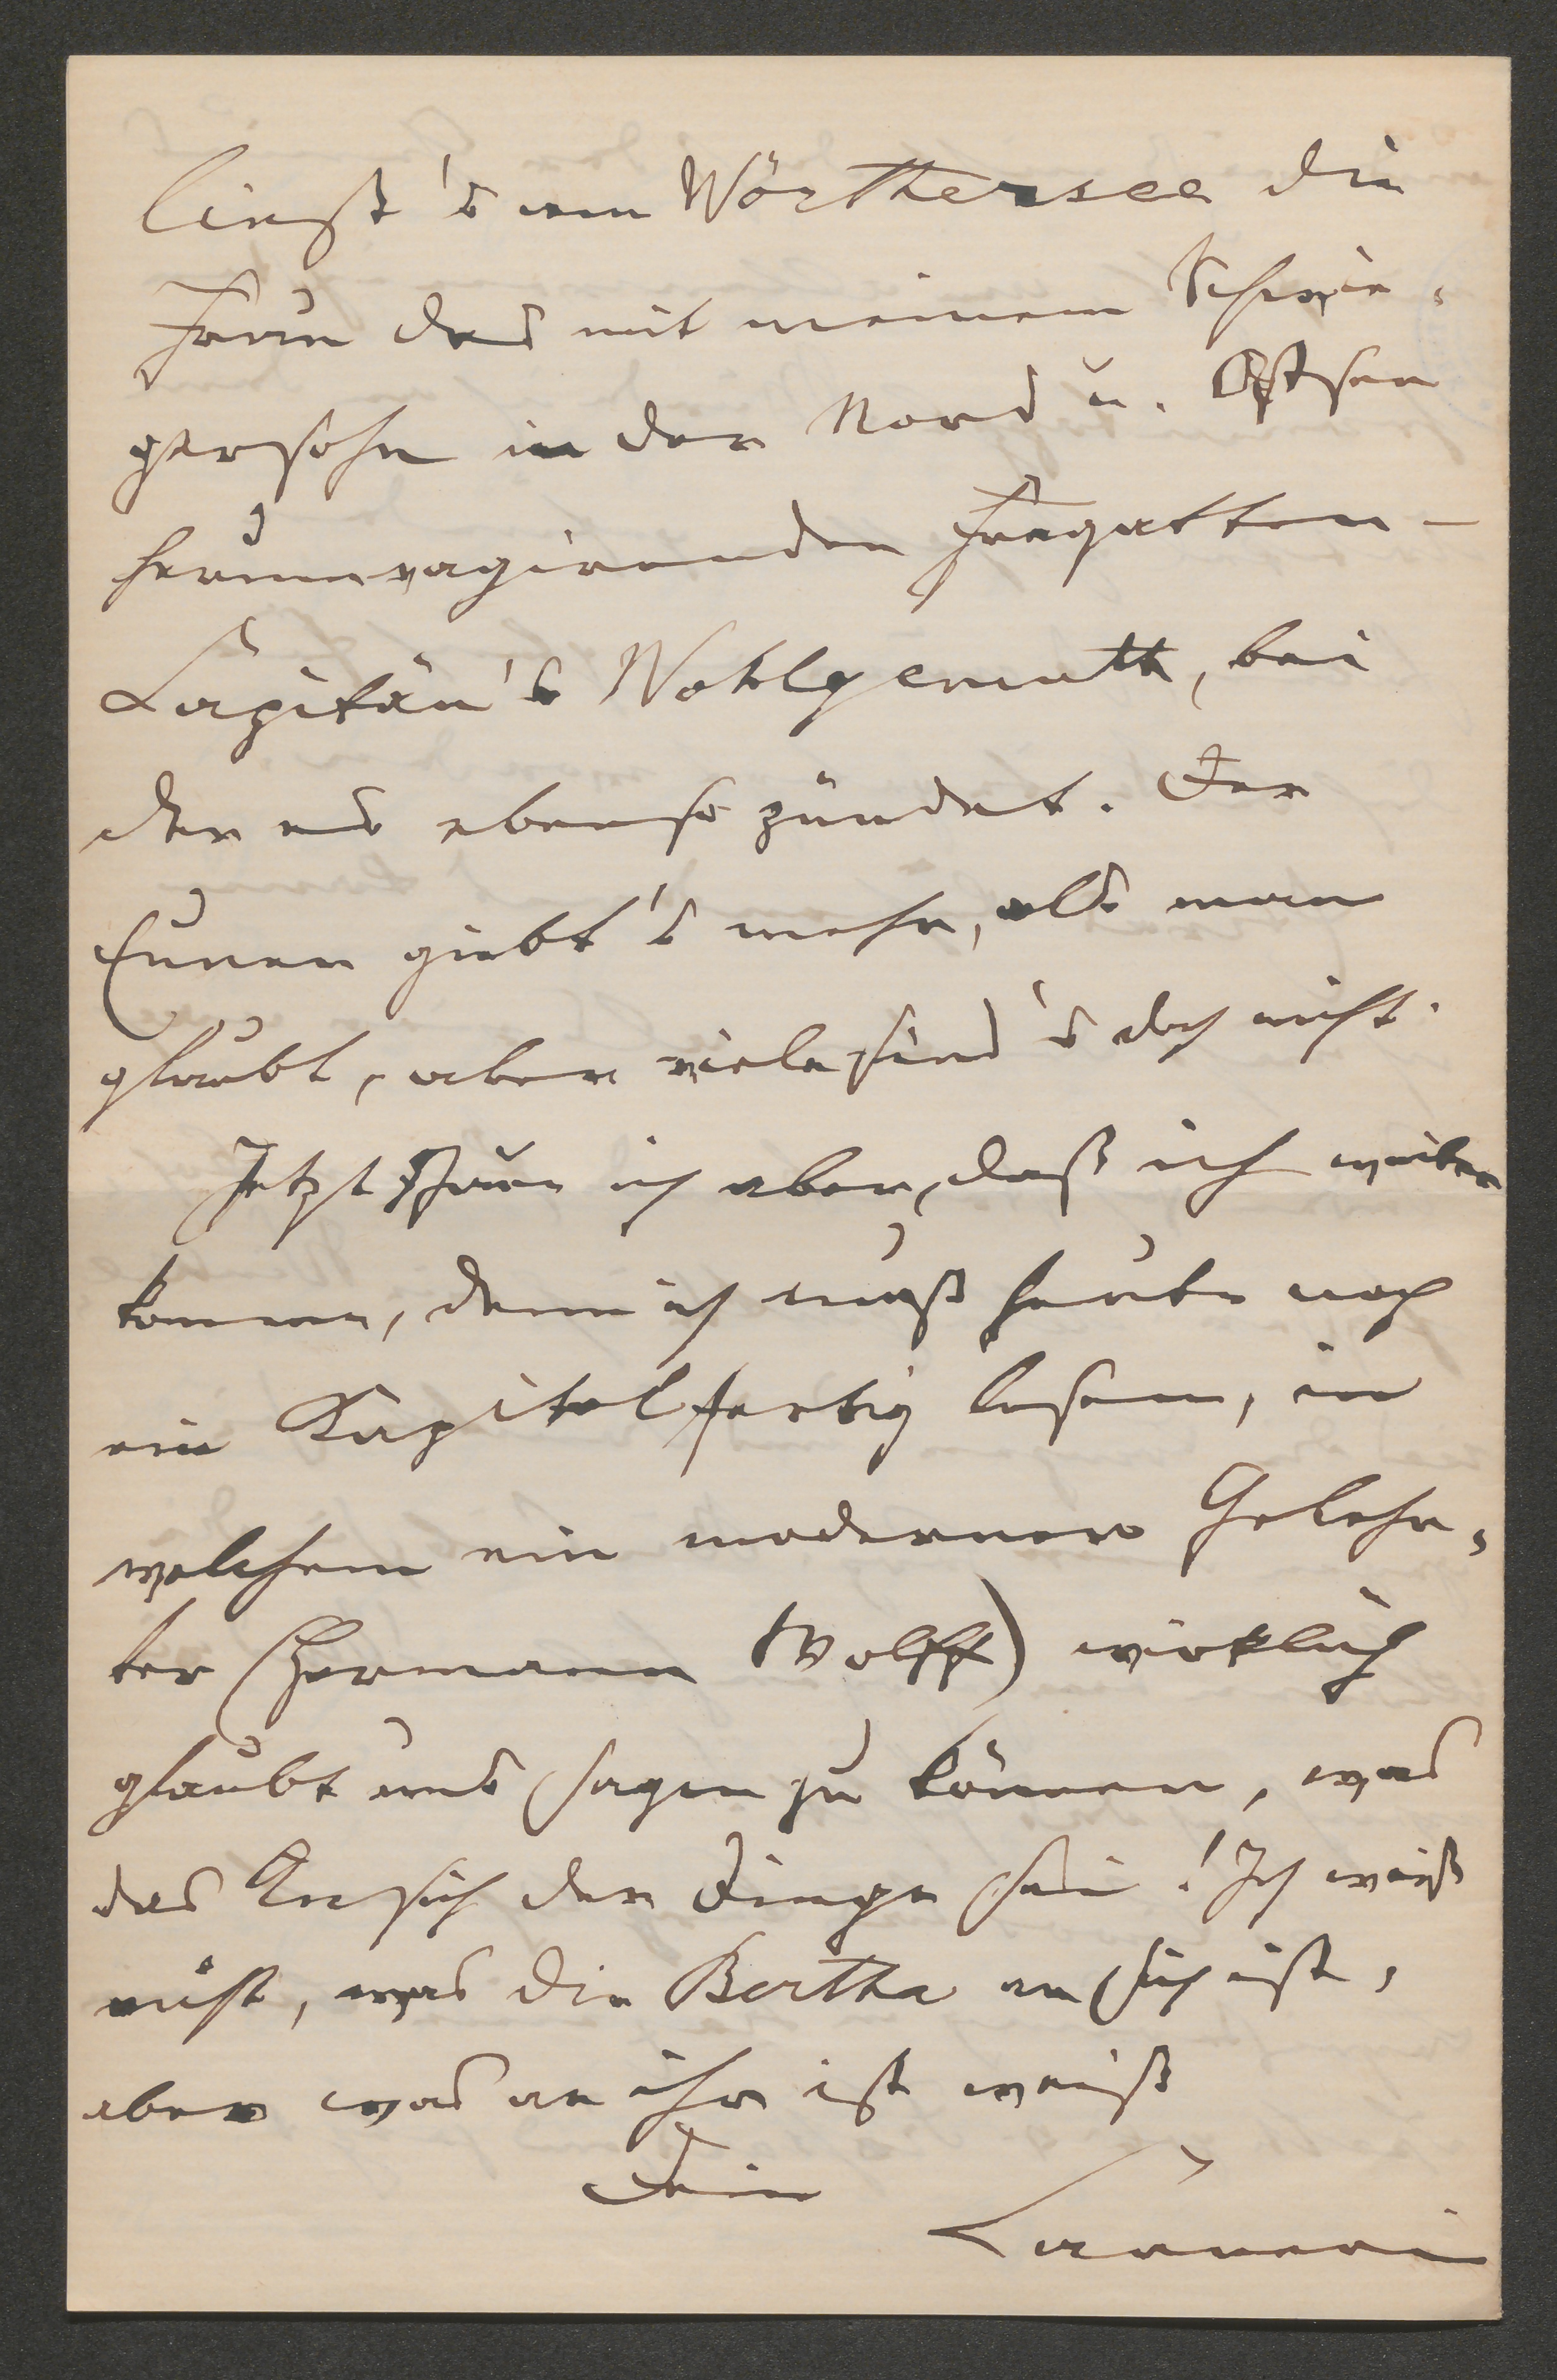 liest's am Wörthersee die
Frau des mit meinem Schwie-
gersohn in der Nord u. Ostsee
herumvagirenden Fregatten-
Capitän's Wohlgemuth, bei
der es ebenso zündet. Der
Eunen giebt's mehr, als man
glaubt, aber viele sind's doch nicht.
Jetzt schaue ich aber, daß ich weiter
komme, denn ich muß heute noch
ein Kapitel fertig lesen, in
welchem ein moderner Gelehr-
ter (Hermann Wolff) wirklich
glaubt uns sagen zu können, was
das Ansich der Dinge sei! Ich weiß
nicht, was die Bertha an sich ist,
aber was an ihr ist weiß
Dein
Carneri